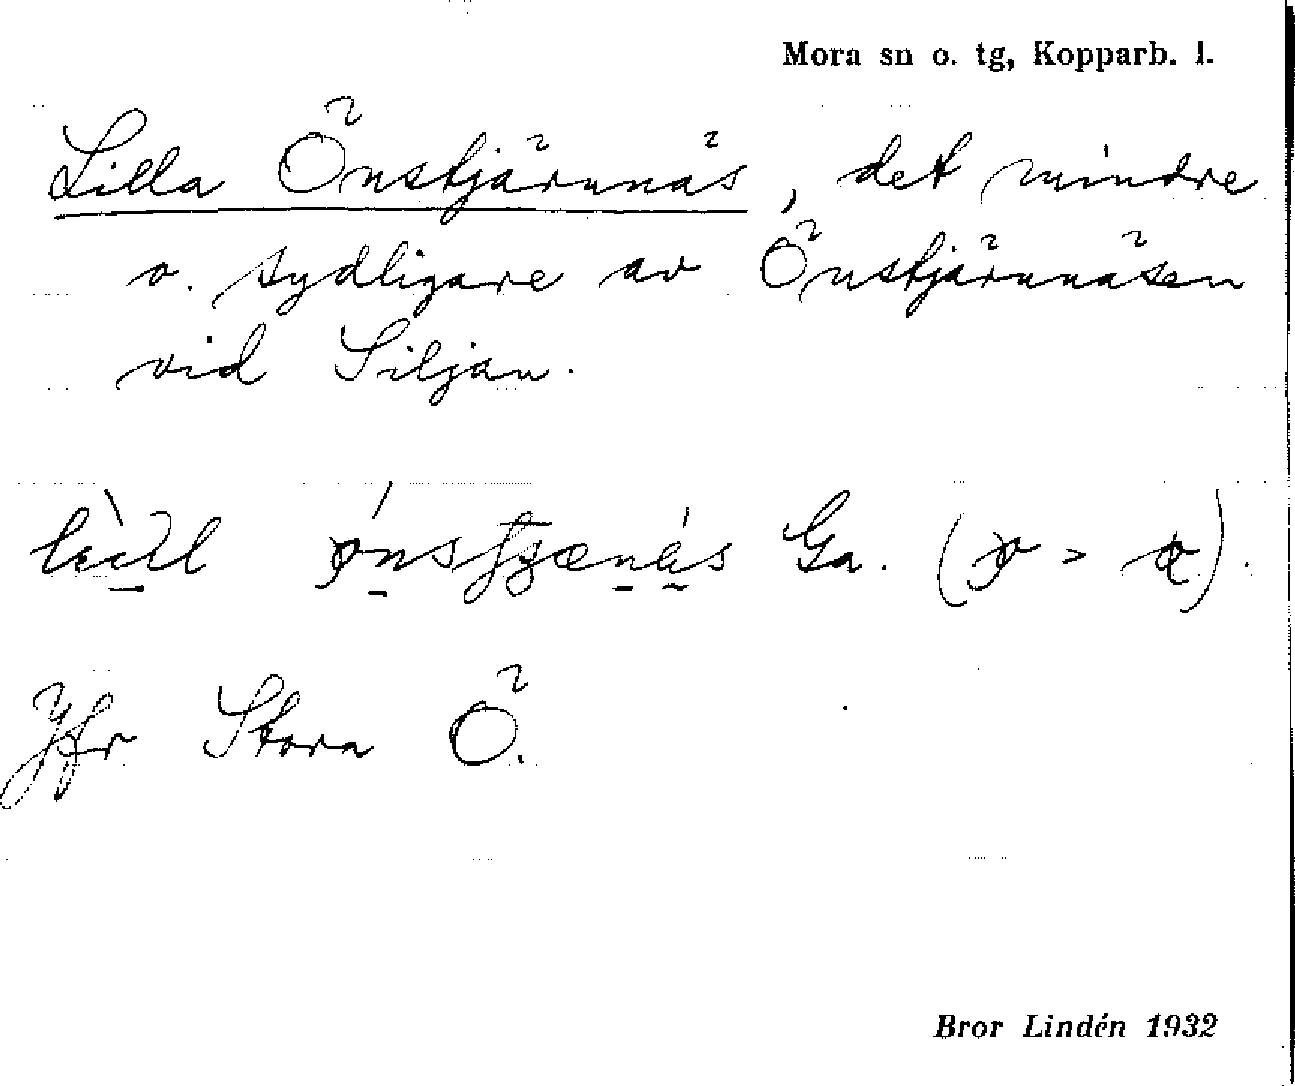 Mora sn o. tg, Kopparb. l.
Lilla Önstjärnnäs, det mindre
o. sydligare av Önstjärnnäsen
vid Siljan.
Ga.
Jfr Stora Ö.
Bror Lindén 1932